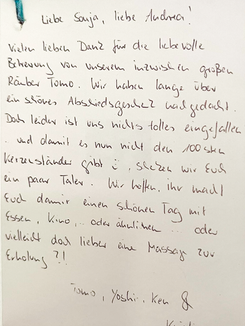 Liebe Sonja, liebe Andrea!
Vielen lieben Dank für die liebevolle
Betreuung von unserem inzwischen großen
Räuber Tomo. Wir haben lange über
ein schönes Abschiedsgeschenk nachgedacht.
Doch leider ist uns nichts tolles eingefallen
und damit es nun nicht den 100sten
Kerzenständer gibt, schenken wir Euch
ein paar Taler. Wir hoffen, ihr macht
Euch damit einen schönen Tag mit
Essen, Kino, oder ähnlichem... oder
vielleicht doch lieber eine Massage zur
Erholung?!!
Tomo, Yoshi, Ken &